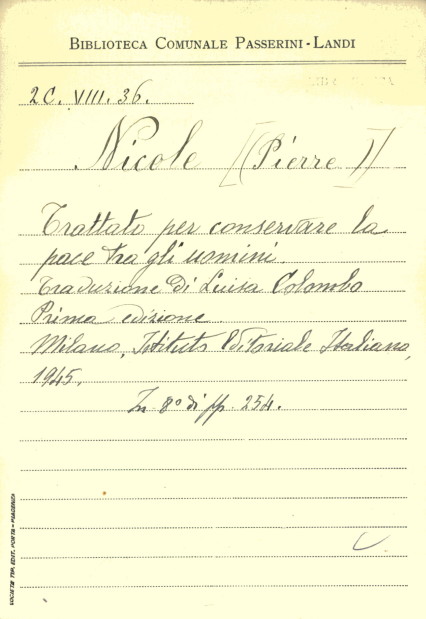 BIBLIOTECA COMUNALE PASSERINI-LANDI
2C. VIII. 36.
Nicole [(Pierre)]
Trattato per conservare la
pace tra gli uomini.
Traduzione di Luisa Colombo
Prima edizione
Milano, Istituto Editoriale Italiano,
1945.
In 8° di pp. 254.
SOCIETÀ TIP. EDIT. PORTA - PIACENZA